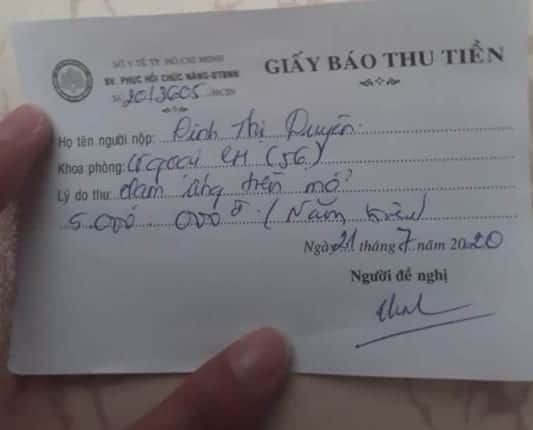 SỞ Y TẾ TP. HỒ CHÍ MINH
BV. PHỤC HỒI CHỨC NĂNG-ĐTBNN
GIẤY BÁO THU TIỀN
Số 2013605 /HCSN
Họ tên người nộp: Đinh Thị Duyên
Khoa phòng: Ngoại CH (56)
Lý do thu: tạm ứng tiền mổ
5.000 000đ (Năm triệu)
Ngày 21 tháng 7 năm 2020
Người đề nghị